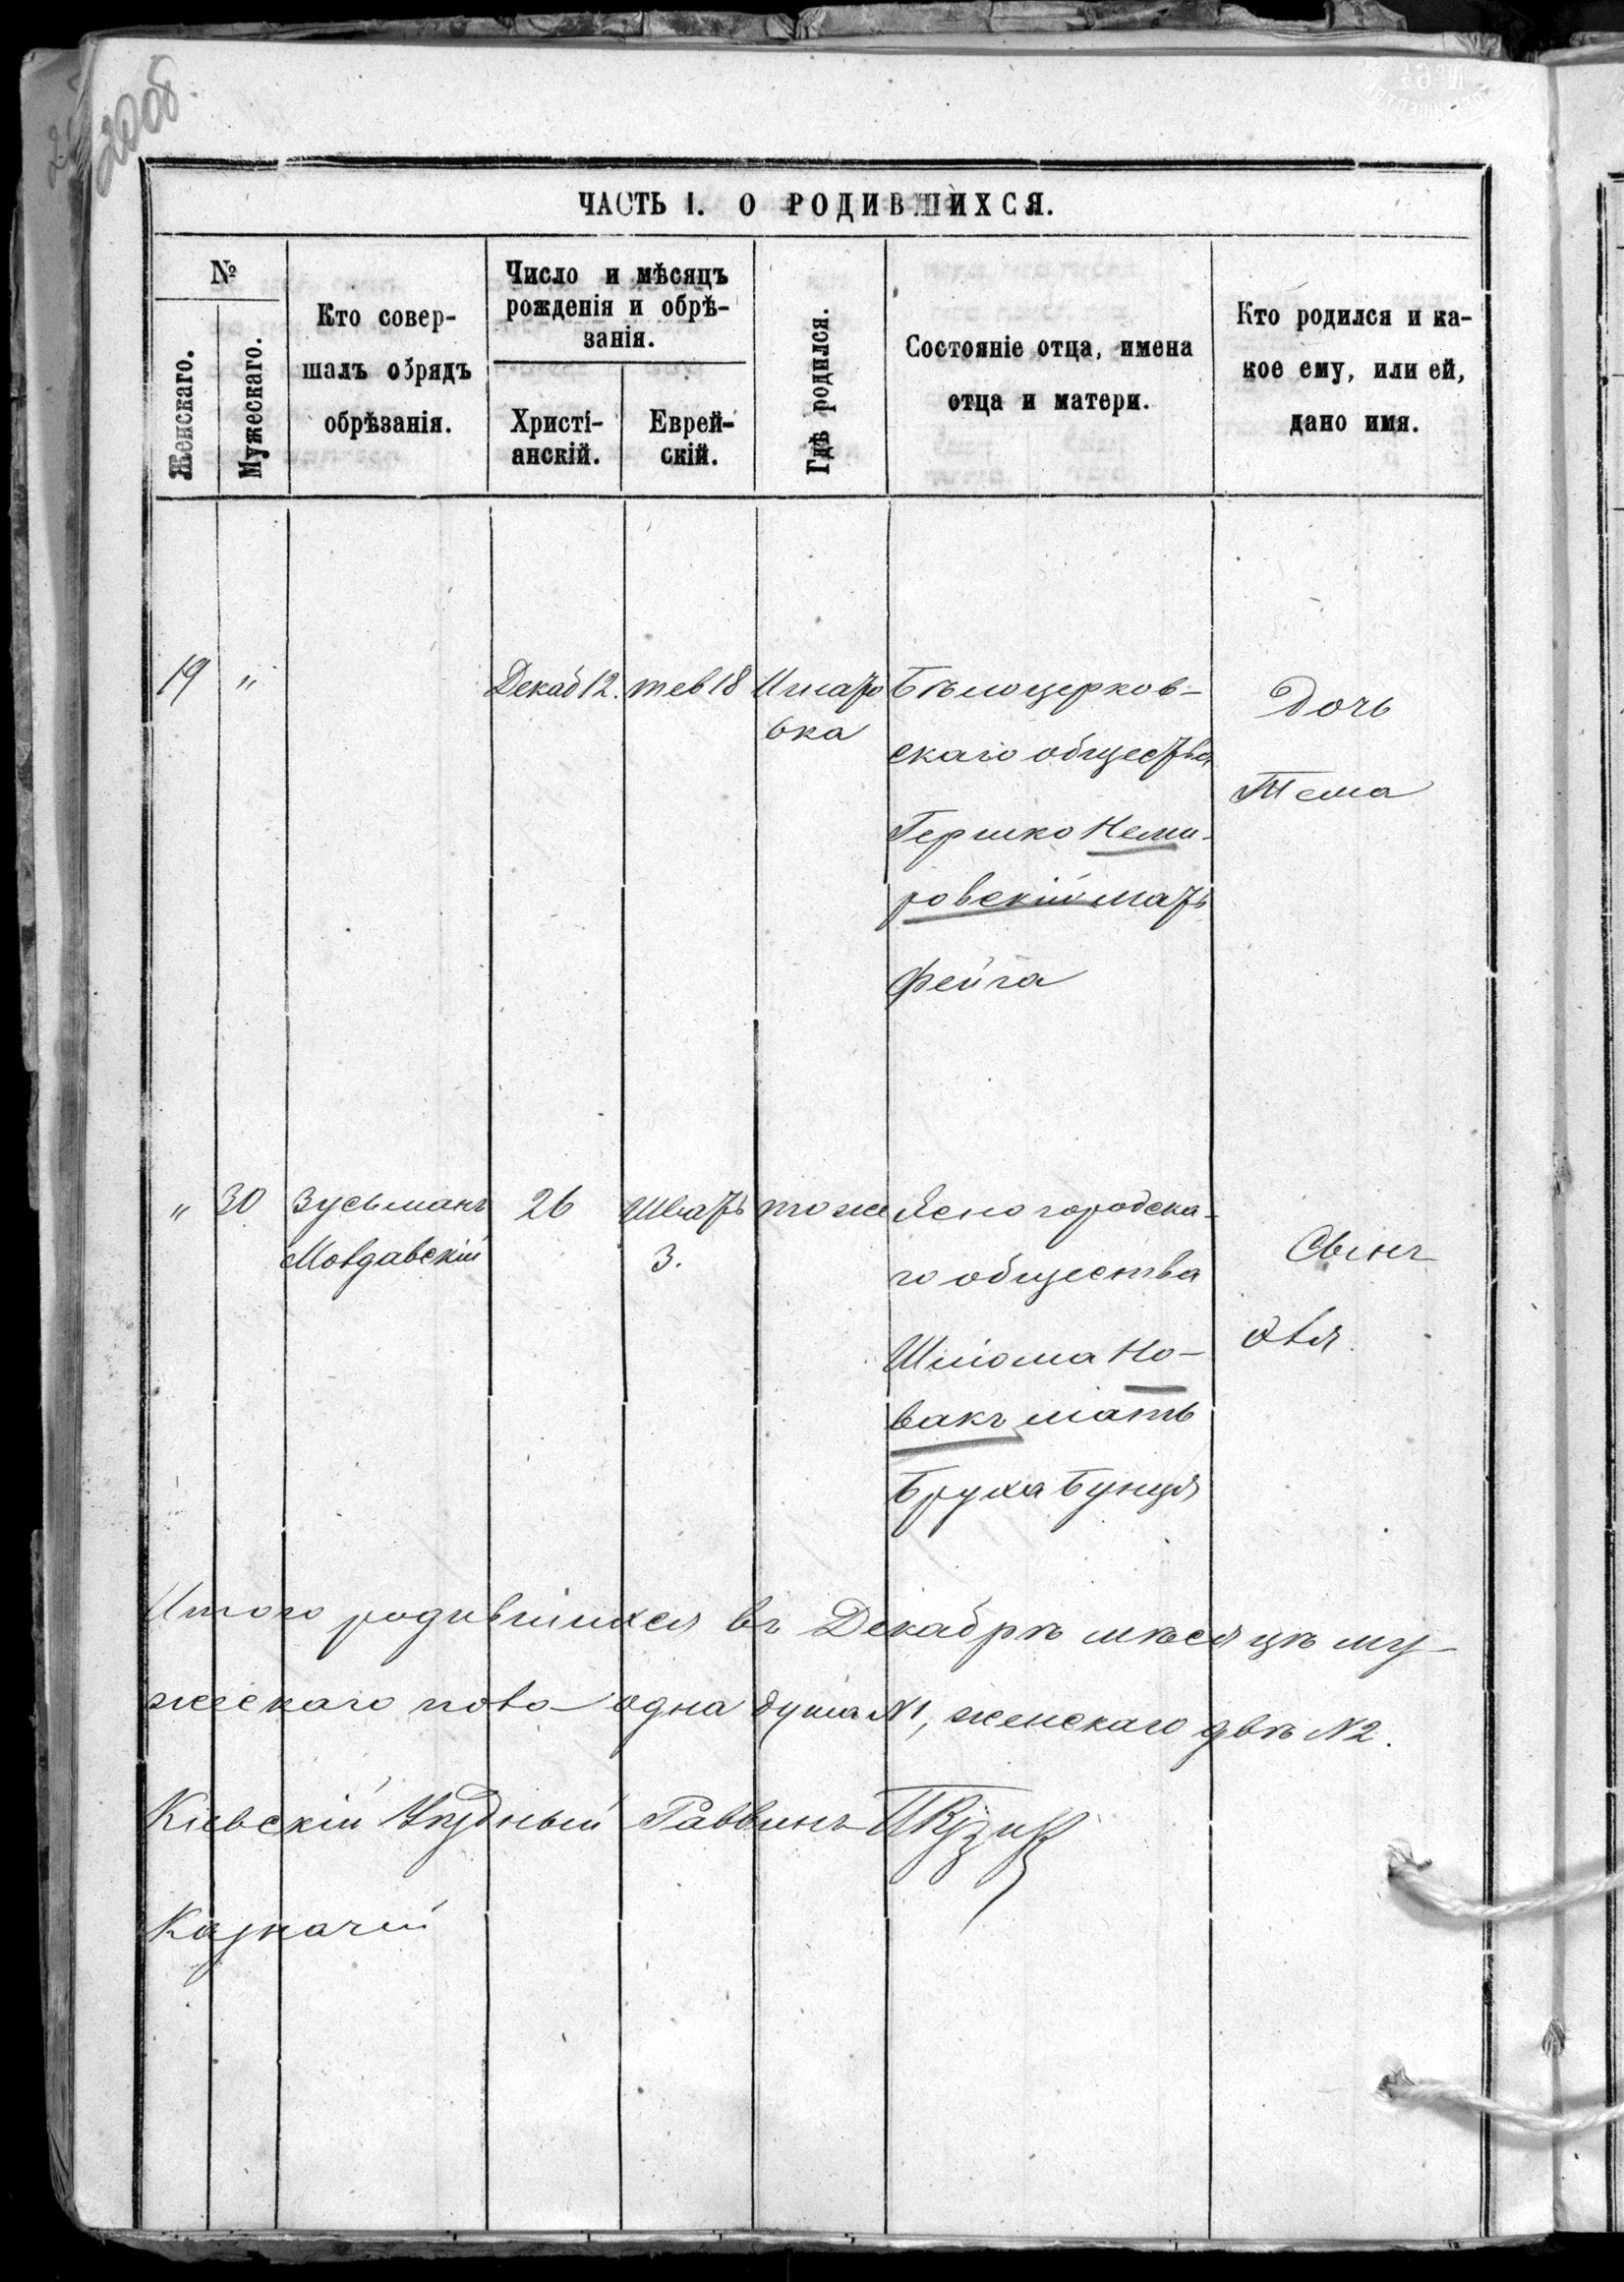 200об.
ЧАСТЬ I. О РОДИВШИХСЯ.
№
Женскаго.
Мужескаго.
Кто совер-
шалъ обрядъ
обрѣзанія.
Число и мѣсяцъ
рожденія и обрѣ-
занія.
Христі-
анскій.
Еврей-
скій.
Гдѣ родился.
Состояніе отца, имена
отца и матери.
Кто родился и ка-
кое ему, или ей,
дано имя.
19 " Декаб 12. тев 18 Бѣлоцерков-
вка
скаго общества
Гершко Неми-
ровскій мать
Фейга
Дочь
Тема
" 30 Зусьманъ 26 Шватъ тоже Ясногородска-
Молдавскій 3. го общества
Шлома Но-
вакъ мать
Бруха Бунця
Сынъ
Итого родившихся въ Декабрѣ мѣсяцѣ му-
жескаго пола одна душа №1, женскаго двѣ №2.
Кіевскій Уѣздный Раввинъ
Казначей